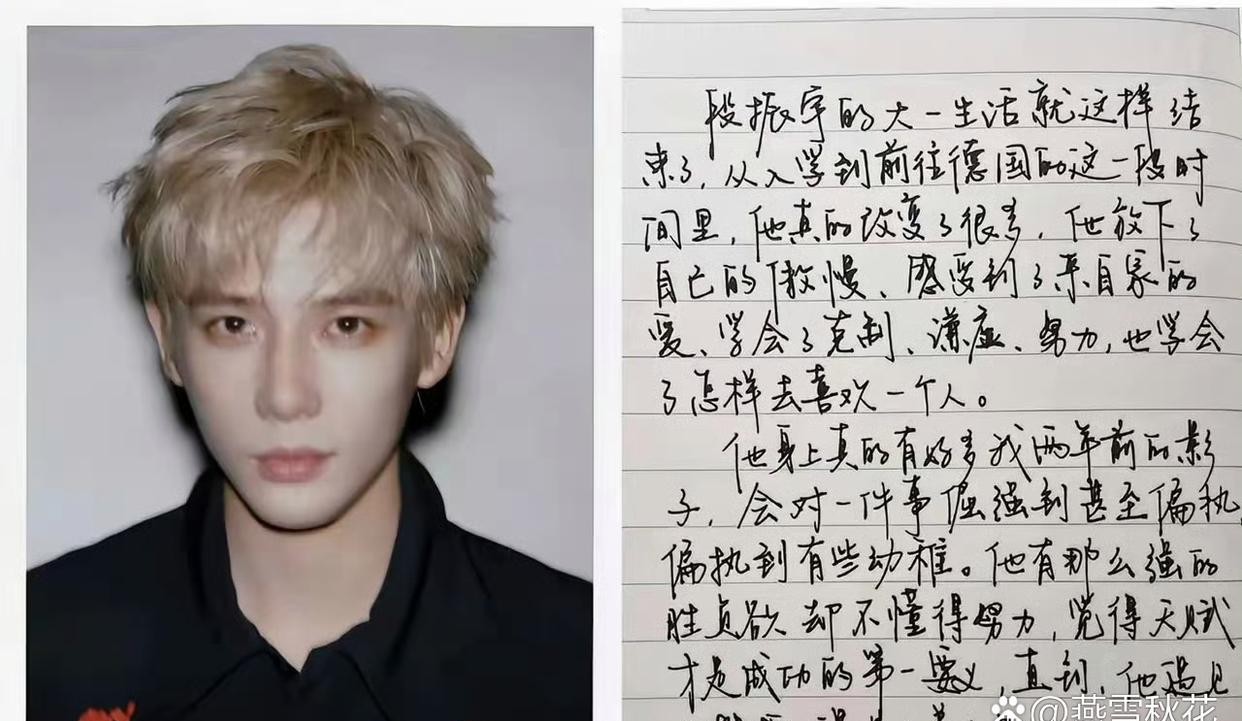 段振宇的大一生活就这样结
束了，从入学到前往德国的这一段时
间里，他真的改变了很多，他放下了
自己的傲慢、感受到了来自家的
爱、学会了克制、谦虚、努力，也学会
了怎样去喜欢一个人。
他身上真的有好多我两年前的影
子，会对一件事倔强到甚至偏执，
偏执到有些幼稚。他有那么强的
胜负欲却不懂得努力，觉得天赋
才是成功的第一要义，直到，他遇见
@燕雪秋花